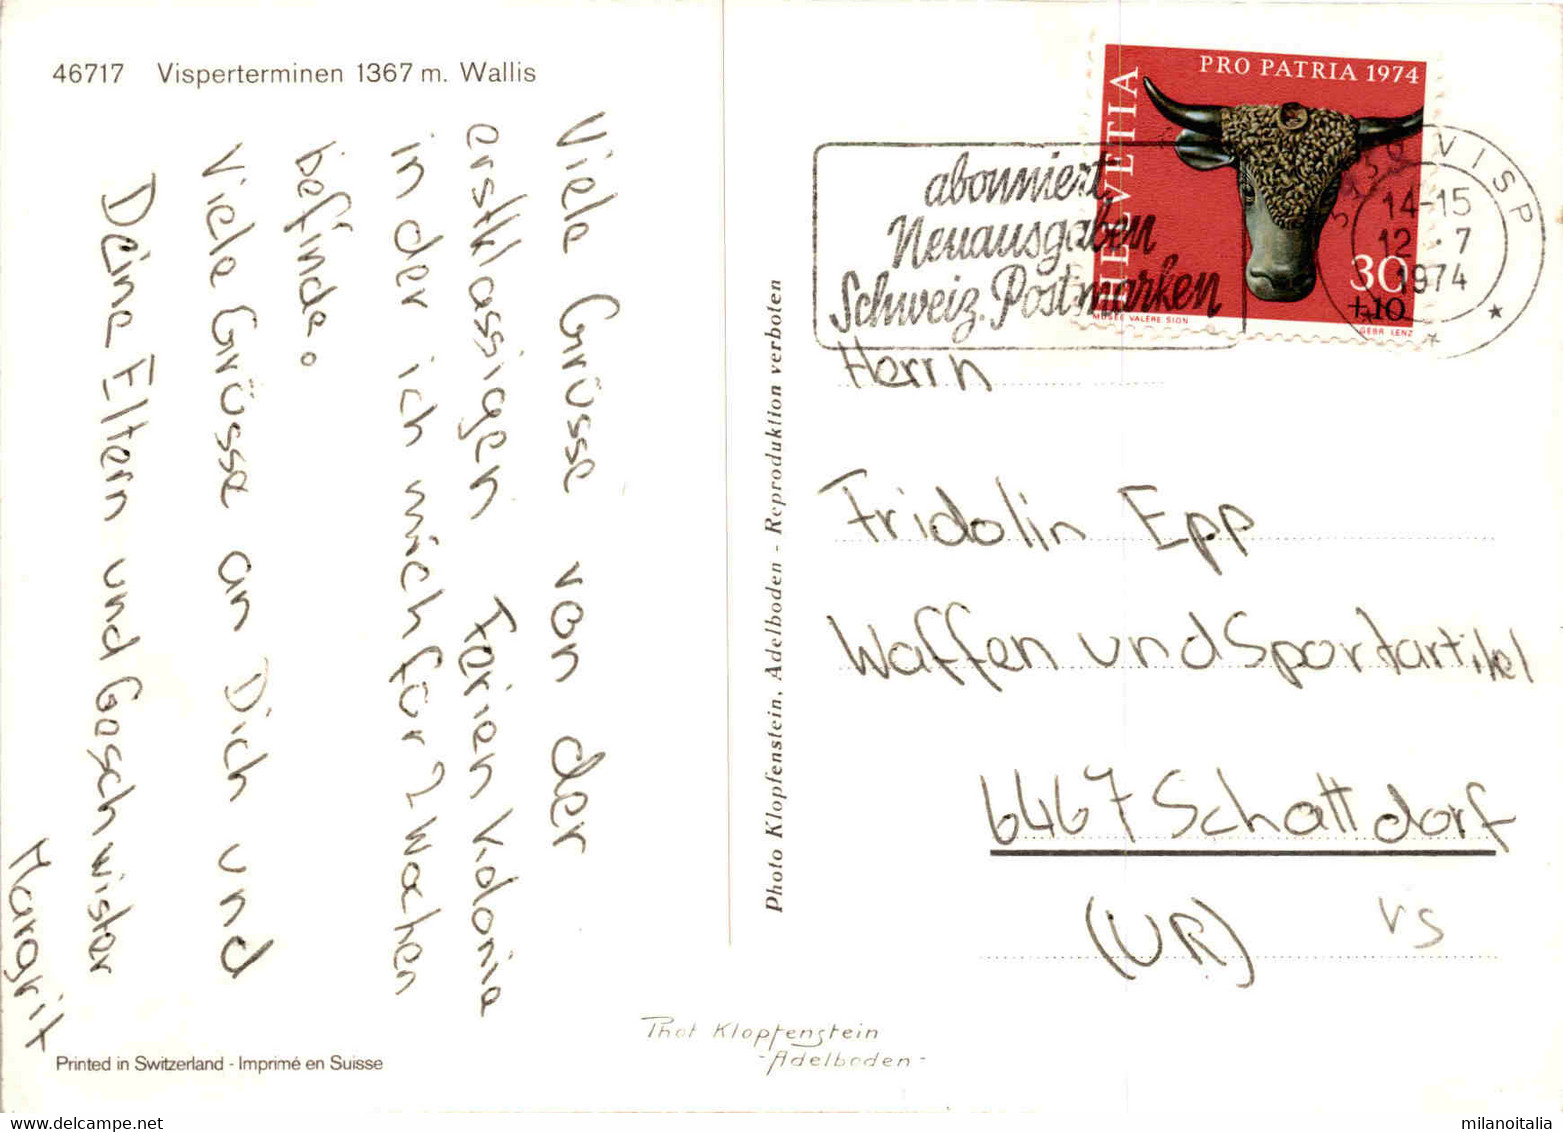 46717 Visperterminen 1367 m. Wallis
Viele Grüsse von der
erstklassigen Ferien Kolonie
in der ich mich für 2 Wochen
befinde.
Viele Grüsse an Dich und
Deine Eltern und Geschwister
Margrit
Printed in Switzerland - Imprimé en Suisse
Photo Klopfenstein, Adelboden - Reproduktion verboten
Phot Klopfenstein
- Adelboden -
abonniert
Neuausgaben
Schweiz. Postmarken
HELVETIA
PRO PATRIA 1974
30
+10
MUSÉE VALÈRE SION
GEBR. LENZ
3930 VISP
14-15
12.-7
1974
Herrn
Fridolin Epp
Waffen und Sportartikel
6467 Schattdorf
(UR)
VS
milanoitalia